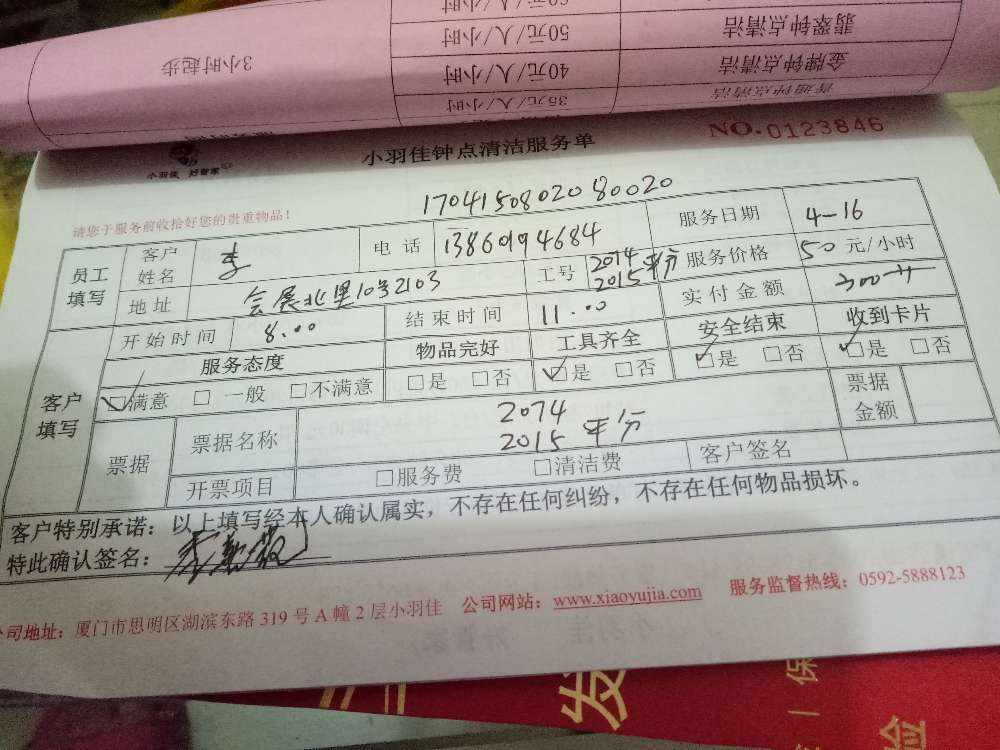 60元/人/小时
翡翠钟点清洁 50元/人/小时
金牌钟点清洁 40元/人/小时 3小时起步
普通钟点清洁 35元/人/小时
小羽佳 好管家
小羽佳钟点清洁服务单
NO.0123846
请您于服务前收拾好您的贵重物品！
1704150802080020
员工填写 客户姓名 李 电话 13860194684 服务日期 4-16
地址 会展北里10号2103 工号 2074 2015 平分 服务价格 50元/小时
开始时间 8.00 结束时间 11.00 实付金额 300
客户填写 服务态度 物品完好 工具齐全 安全结束 收到卡片
☑满意 □一般 □不满意 □是 □否 ☑是 □否 ☑是 □否 ☑是 □否
票据 票据名称 2074 2015 平分 票据金额
开票项目 □服务费 □清洁费 客户签名
客户特别承诺：以上填写经本人确认属实，不存在任何纠纷，不存在任何物品损坏。
特此确认签名：
公司地址：厦门市思明区湖滨东路319号A幢2层小羽佳 公司网站：www.xiaoyujia.com 服务监督热线：0592-5888123
发
保
检